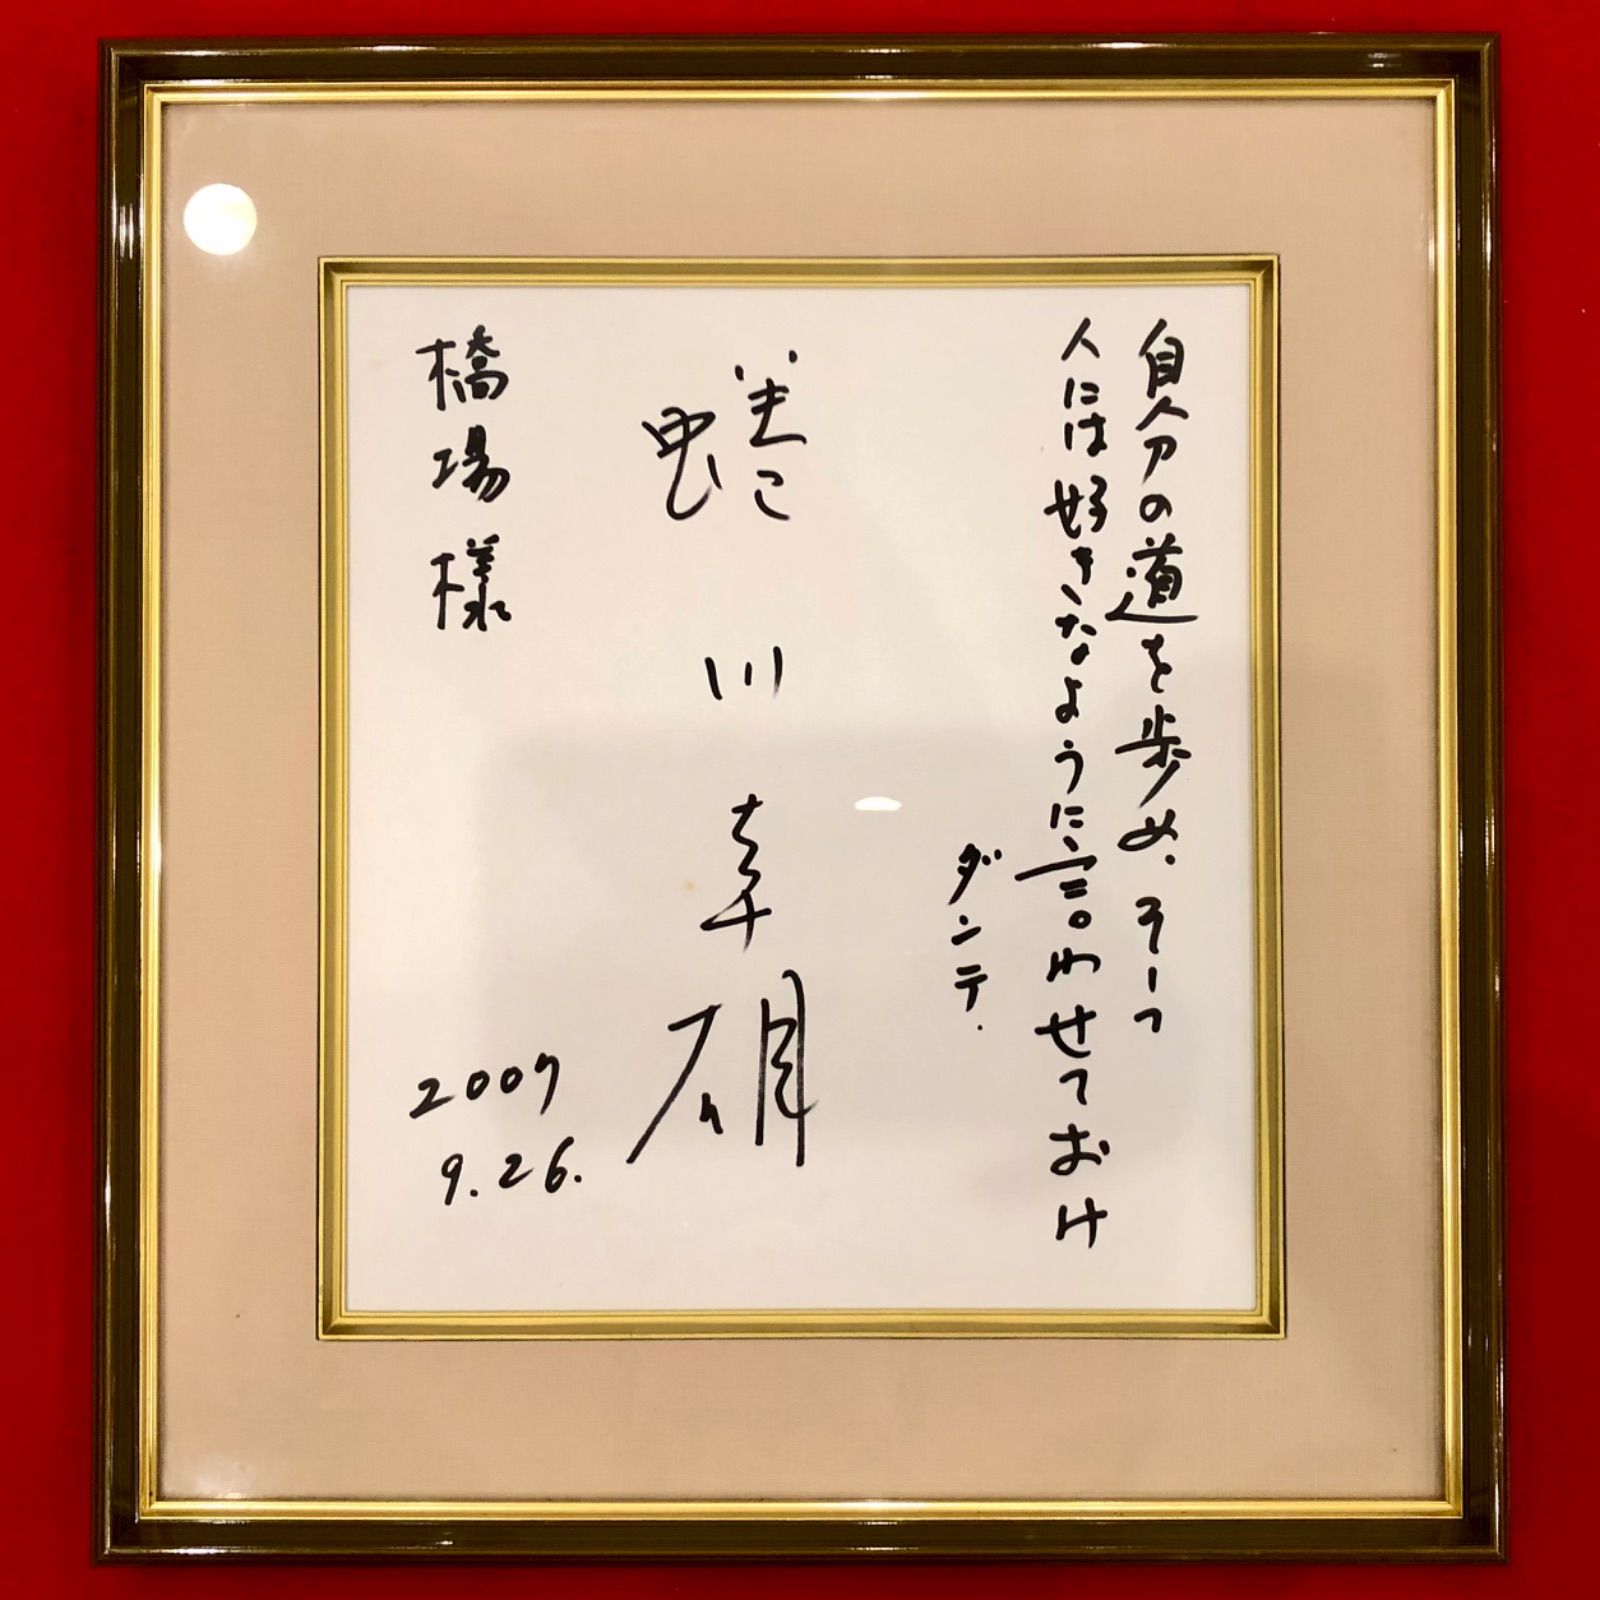 自分の道を歩め、そして
人には好きなように言わせておけ
ダンテ.
蜷川幸雄
橋場様
2007
9.26.